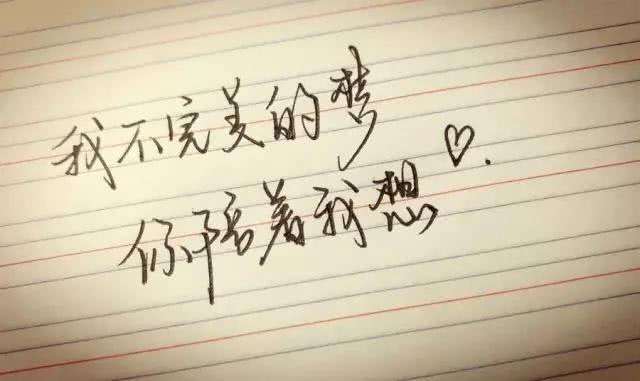 我不完美的梦
你陪着我想♡.